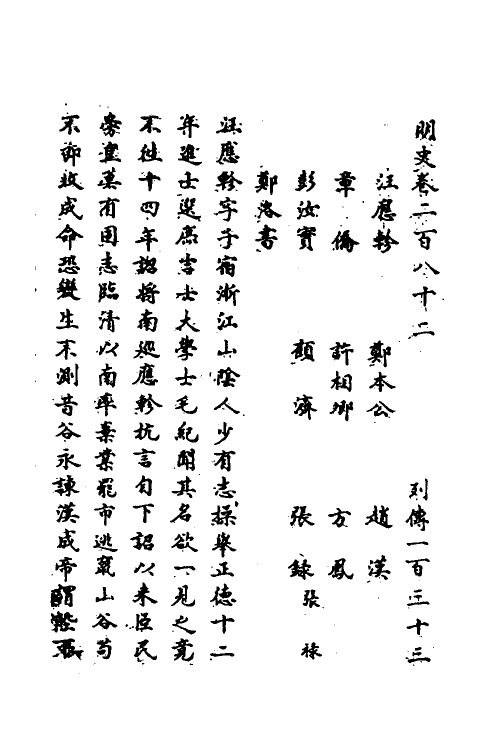 明史卷二百八十二 列傳一百三十三
汪應軫 鄭本公 趙漢
章僑 許相卿 方鳳
彭汝實 顧濟 張錄 張祿
鄭洛書
汪應軫字子宿浙江山陰人少有志操舉正德十二
年進士選庶吉士大學士毛紀聞其名欲一見之竟
不往十四年詔將南巡應軫抗言自下詔以来臣民
旁皇莫有固志臨清以南率棄業罷市逃竄山谷苟
不卽收成命恐變生不測昔谷永諫漢成帝謂